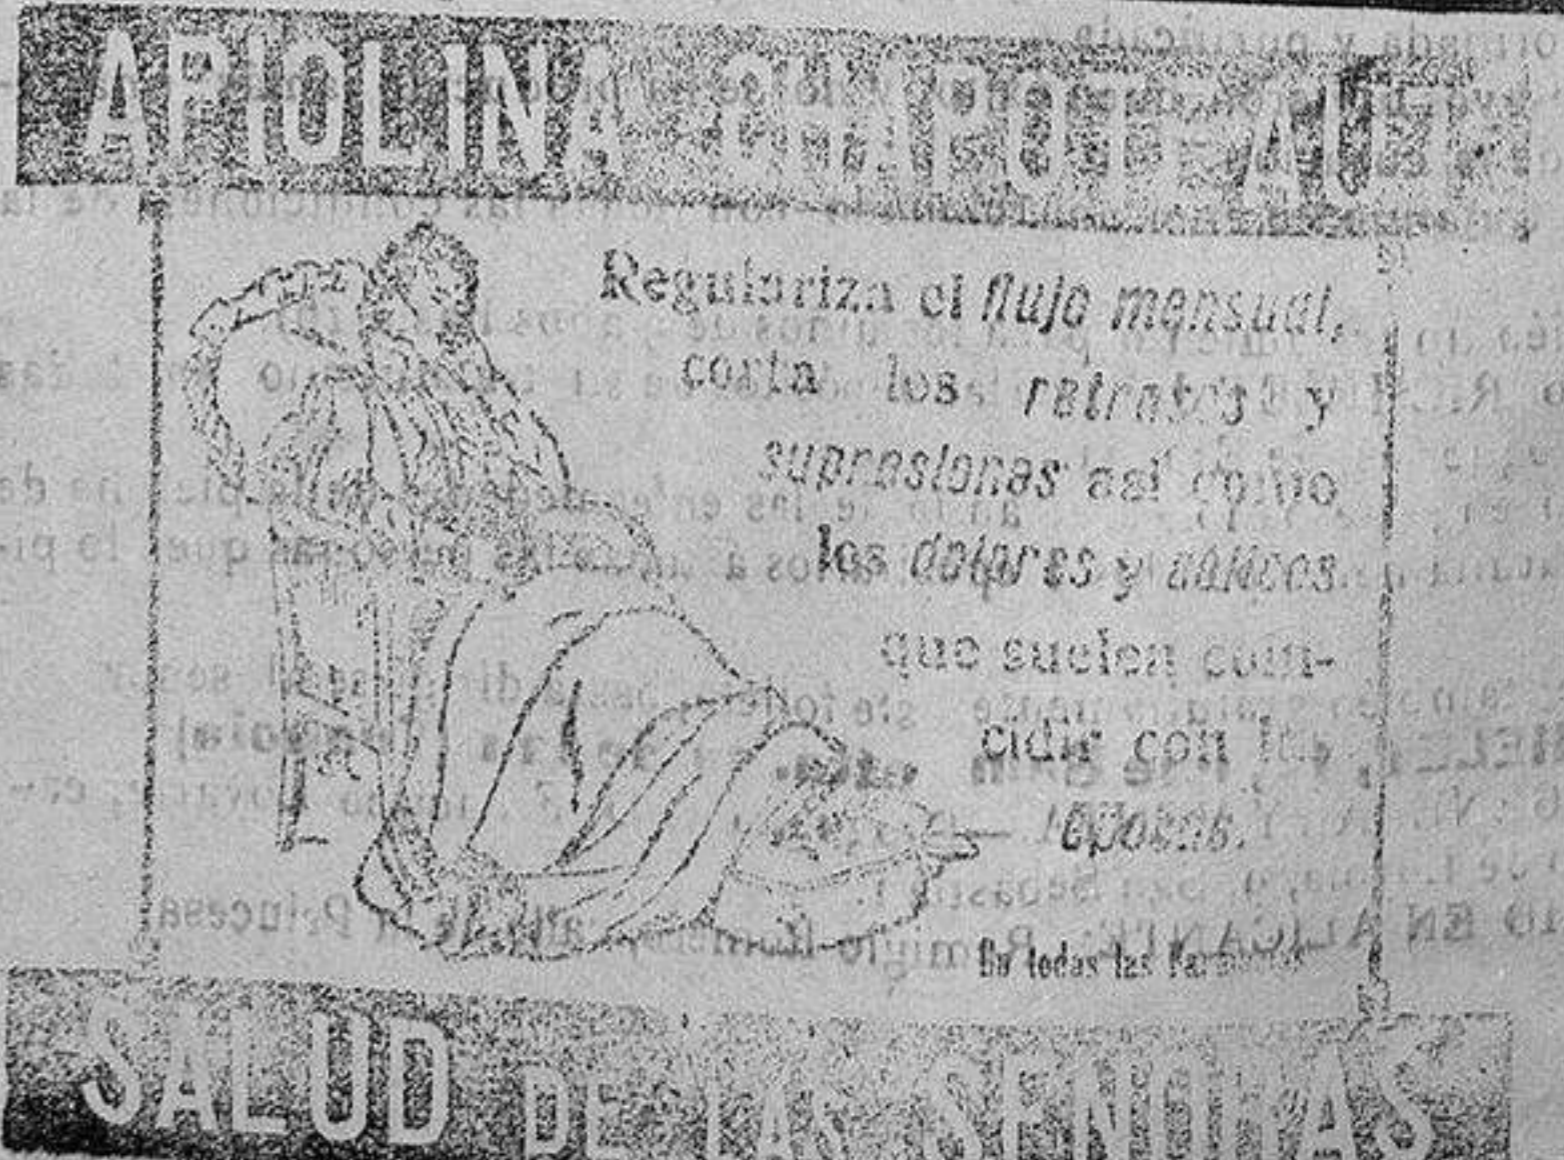 APIOLINA CHAPOTEAUT
Regulariza el flujo mensual,
corta los retrasos y
supresiones así como
los dolores y cólicos
que suelen coin-
cidir con las
épocas.
En todas las Farmacias
SALUD DE LAS SEÑORAS